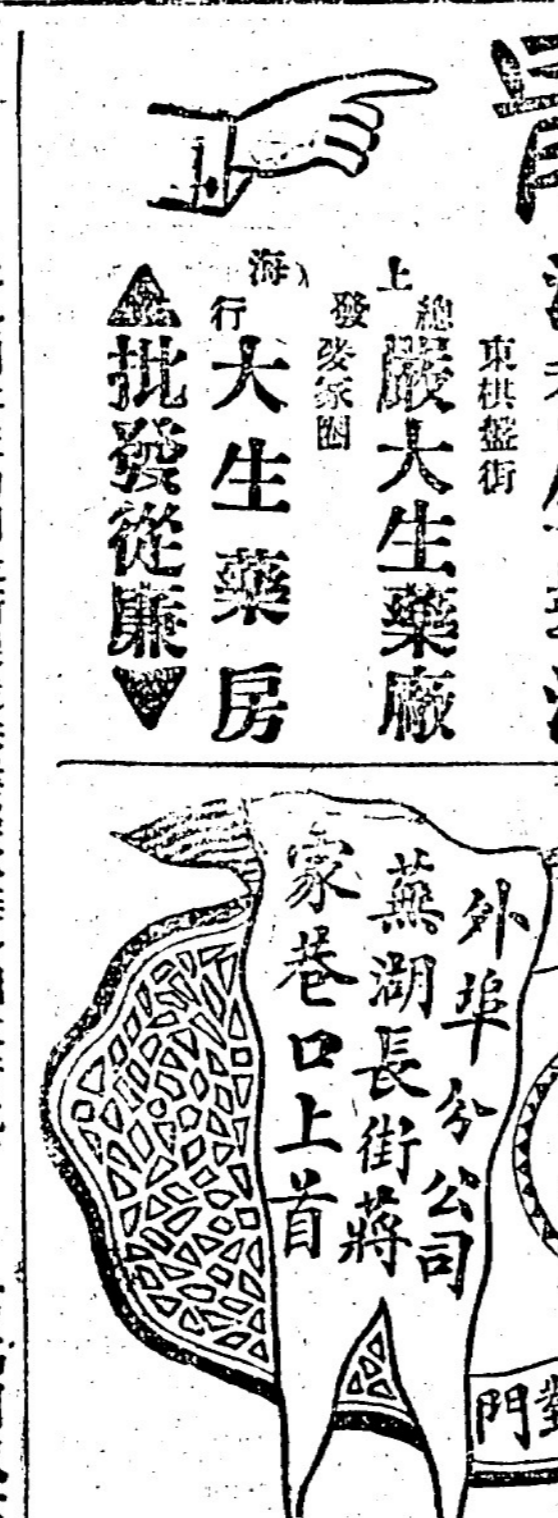 東棋盤街
上海
總發行
嚴大生藥廠
大生藥房
批發從廉
外埠分公司
蕪湖長街蔣
家巷口上首
對門